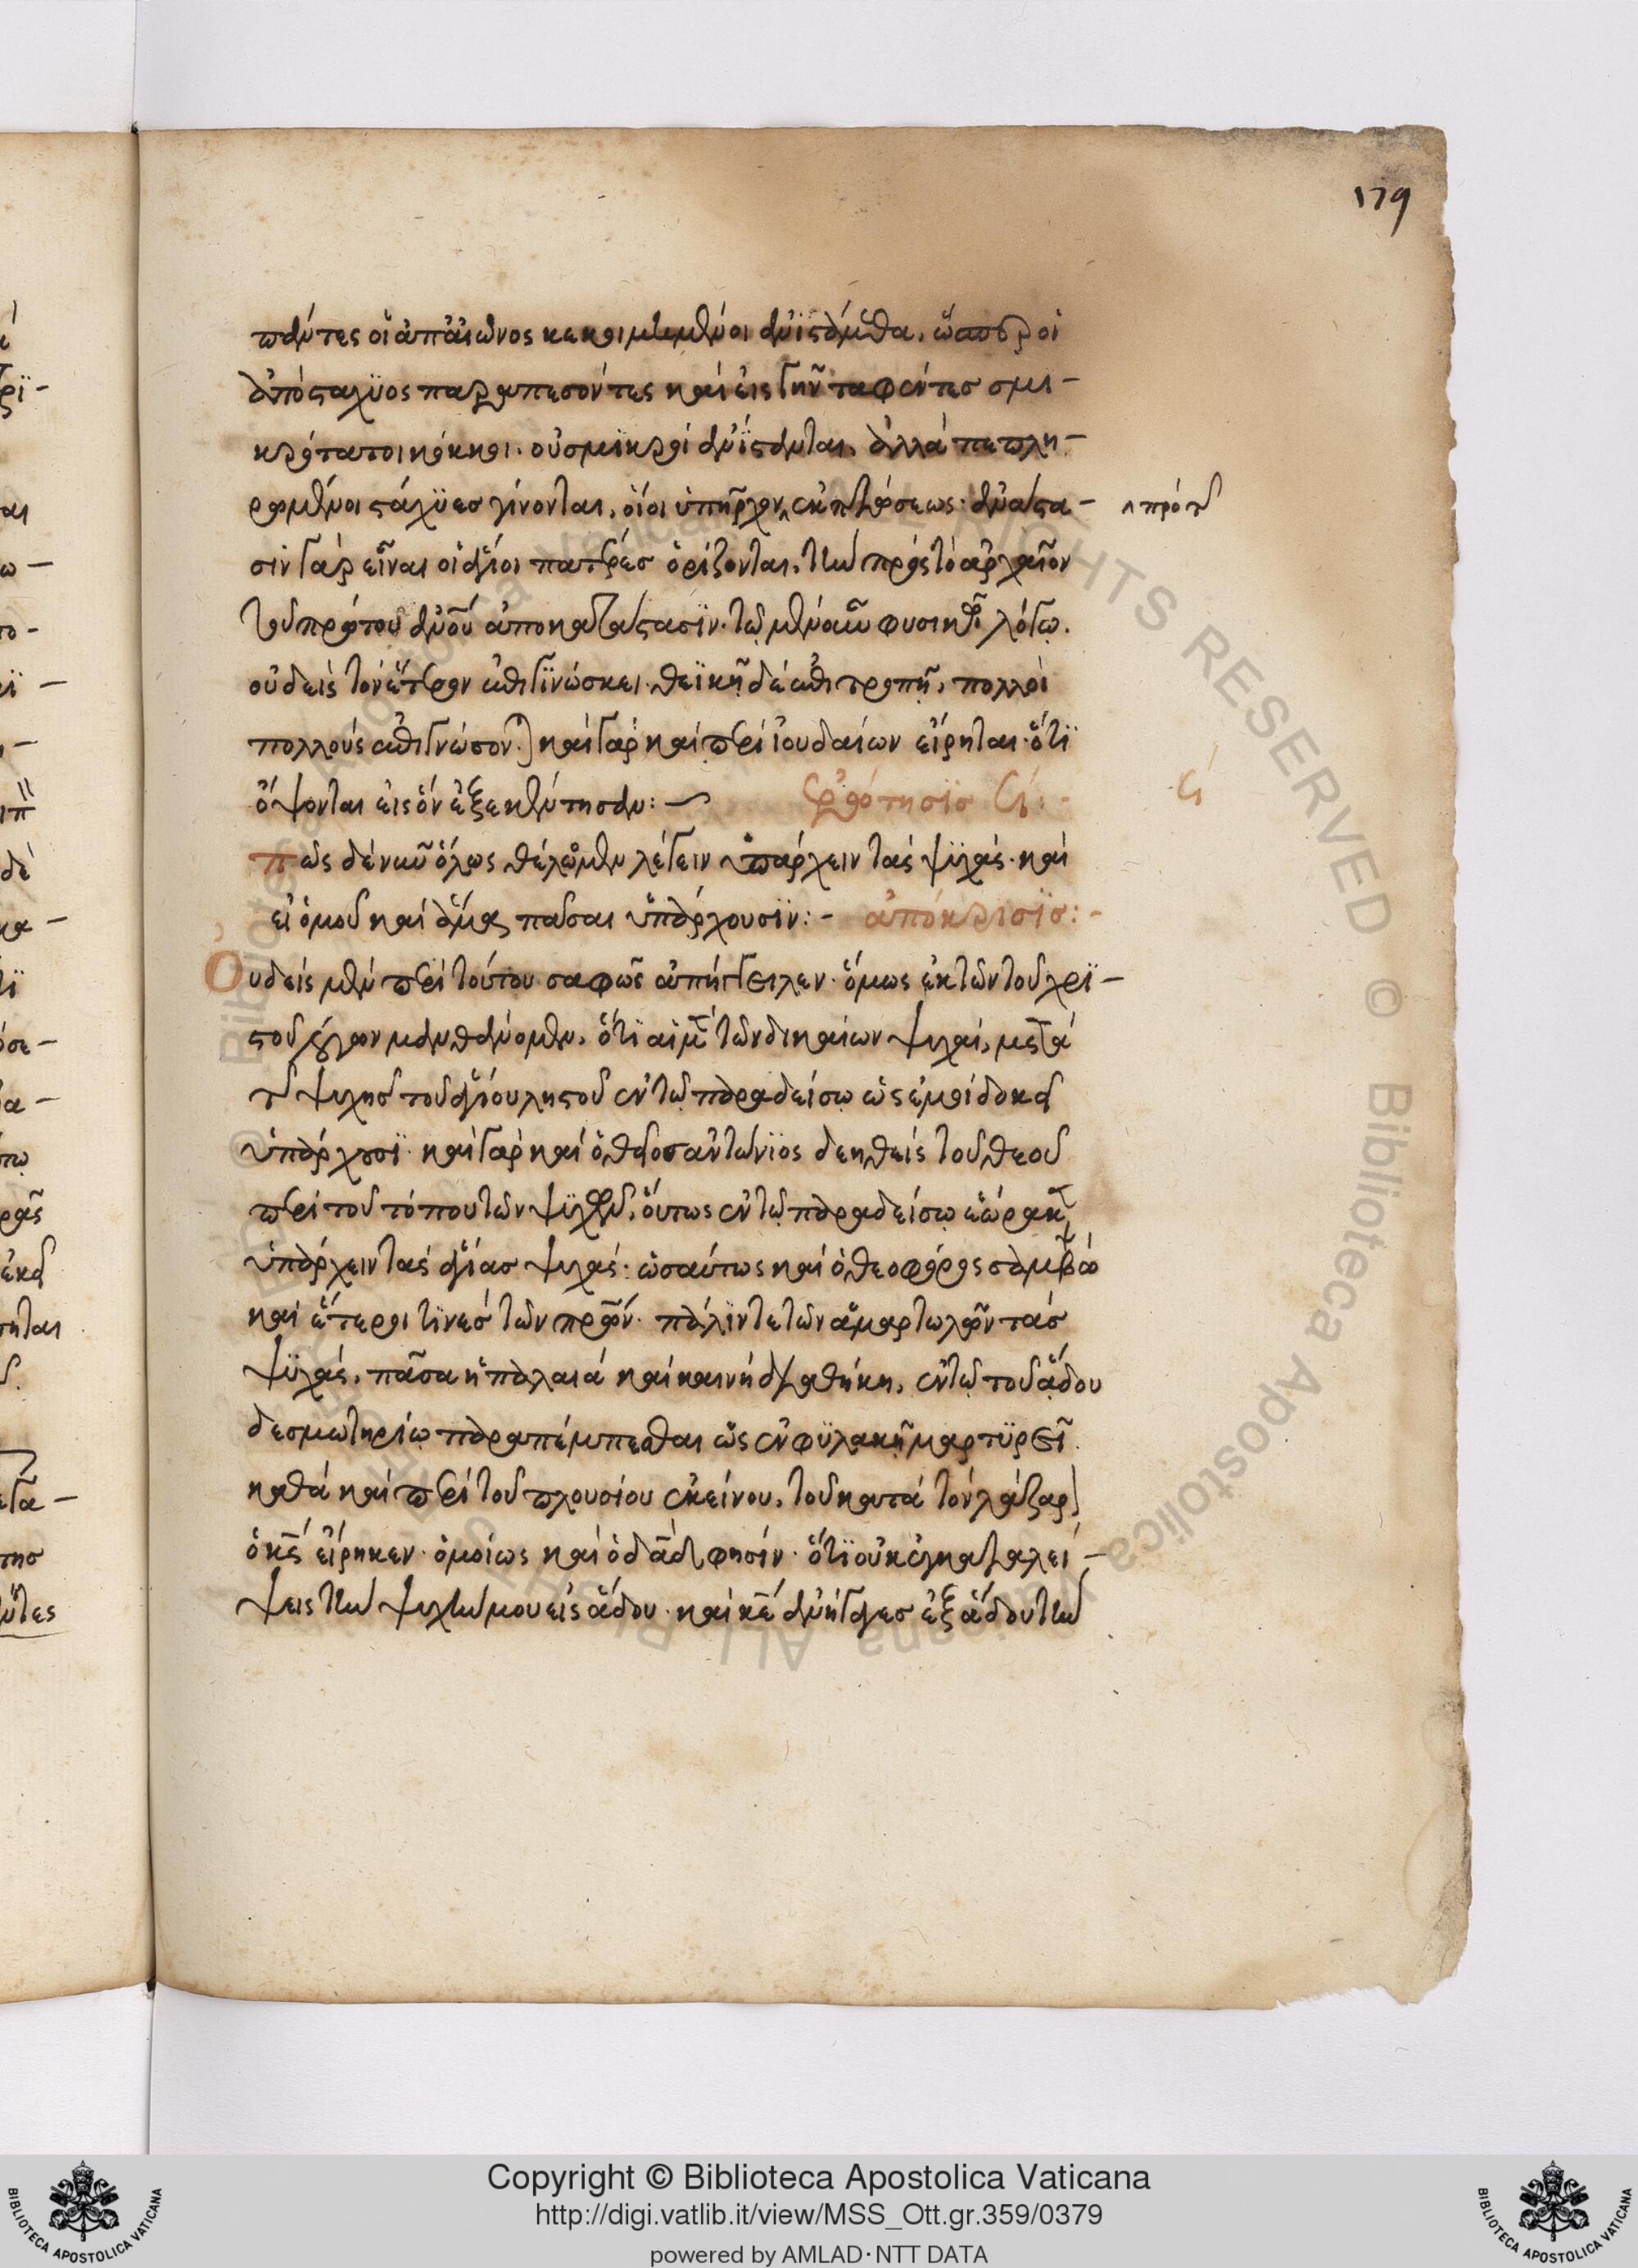 179
πάντες οἱ ἀπ' αἰῶνος κεκοιμημένοι ἀνϊστάμεθα. ὥσπερ οἱ
ἀπὸ στάχυος παραπεσόντες καὶ εἰς γῆν ταφέντες σμι-
κρότατοι κόκκοι. οὐ σμϊκροὶ ἀνΐστανται. ἀλλὰ πεπλη-
ρωμένοι στάχϋες γίνονται, οἷοι ὑπῆρχον ἐκπτώσεως· ἀνάστα-
πρὸ τῆς
σιν γὰρ εἶναι οἱ ἅγιοι πατέρες ὁρίζονται, τὴν πρὸς τὸ ἀρχαῖον
τοῦ πρώτου ἀνθρώπου ἀποκατάστασϊν. τῷ μὲν οὖν φυσικῷ λόγῳ.
οὐδεὶς τὸν ἕτερον ἐπιγϊνώσκει. θεϊκῇ δὲ ἐπιτροπῇ, πολλοὶ
πολλοὺς ἐπιγνώσονται καὶ γὰρ καὶ περὶ ἰουδαίων εἴρηται ὅτϊ
ὄψονται εἰς ὃν ἐξεκέντησαν:
ἐρώτησϊς ϛ΄:-
ϛ΄
πῶς δὲ νῦν ὅλως θέλομεν λέγειν ὑπάρχειν τὰς ψϋχάς. καὶ
εἰ ὁμοῦ καὶ ἅμα πᾶσαι ὑπάρχουσϊν:- ἀπόκρισϊς:-
Οὐδεὶς μὲν περὶ τούτου σαφῶς ἀπήγγειλεν. ὅμως ἐκ τῶν τοῦ χρϊ-
στοῦ λόγων μανθάνομεν, ὅτϊ αἱ μὲν τῶν δικαίων ψυχαί, μετὰ
τῆς ψυχῆς τοῦ ἁγίου ληστοῦ ἐν τῷ παραδείσῳ ὡς ἐμοὶ δοκεῖ
ὑπάρχουσϊ. καὶ γὰρ καὶ ὁ ἅγιος ἀντώνϊος δεηθεὶς τοῦ θεοῦ
περὶ τοῦ τόπου τῶν ψϋχῶν, οὕτως ἐν τῷ παραδείσῳ ἑώρακε
ὑπάρχειν τὰς ἁγίας ψυχάς. ὡσαύτως καὶ ὁ θεοφόρος παμβὼ
καὶ ἕτεροι τϊνὲς τῶν πατέρων. πάλϊν τε τῶν ἁμαρτωλῶν τὰς
ψϋχάς, πᾶσα ἡ παλαιὰ καὶ καινὴ διαθήκη, ἐν τῷ τοῦ ᾅδου
δεσμωτηρίῳ παραπέμπεσθαι ὡς ἐν φϋλακῇ μαρτϋρεῖ.
καθὰ καὶ περὶ τοῦ πλουσίου ἐκείνου, τοῦ κατὰ τὸν λάζαρον
ὁ κύριος εἴρηκεν. ὁμοίως καὶ ὁ δαυῒδ φησίν. ὅτϊ οὐκ ἐγκαταλεί-
ψεις τὴν ψυχήν μου εἰς ᾅδου. καὶ κύριε ἀνήγαγες ἐξ ᾅδου τὴν
Copyright © Biblioteca Apostolica Vaticana
http://digi.vatlib.it/view/MSS_Ott.gr.359/0379
powered by AMLAD·NTT DATA